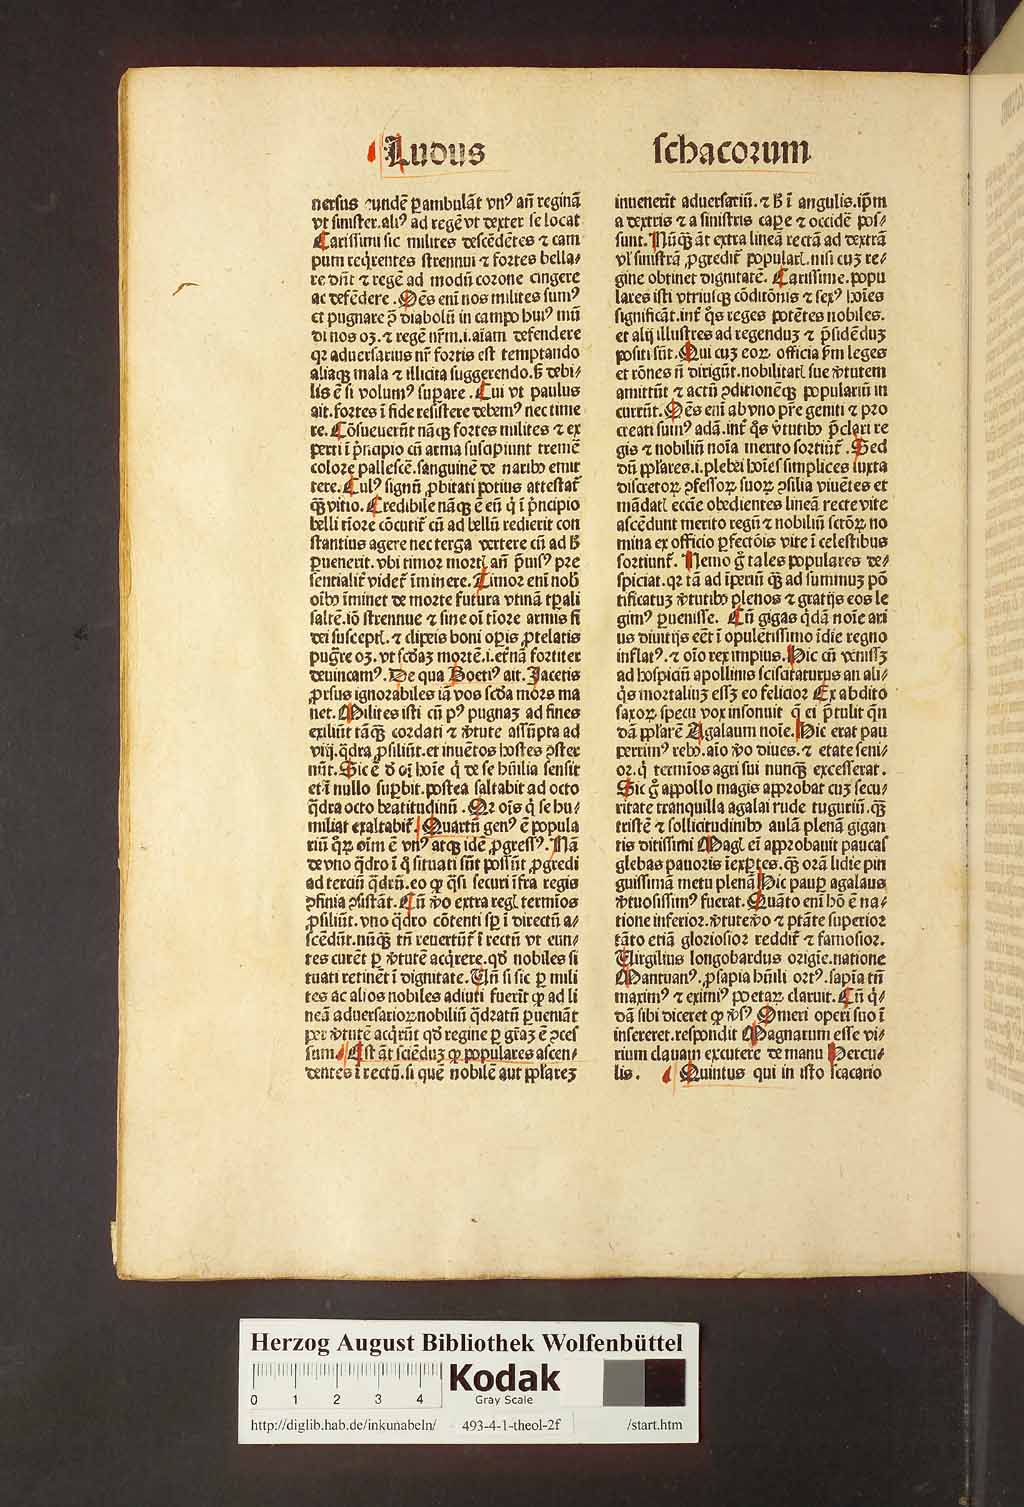 Ludus schacorum
nersus eundē ꝑambulāt vnꝰ añ reginā
vt sinister.aliꝰ ad regē vt dexter se locat
Carissimi sic milites descēdētes ⁊ cam
pum reqͥrentes strennui ⁊ fortes bella⸗
re dn̄t ⁊ regē ad modū corone cingere
ac defēdere .Oēs eni nos milites sumꝰ
et pugnare ꝯ diabolū in campo huiꝰ mū
di nos oꝫ.⁊ regē nr̄m.i.aīam defendere
qꝛ aduersarius nr̄ fortis est temptando
aliaqꝫ mala ⁊ illicita suggerendo.ſꝫ debi⸗
lis ē si volumꝰ suꝑare .Cui vt paulus
ait.fortes ī fide resistere debemꝰ nec time
re.Cōsueuerūt nāqꝫ fortes milites ⁊ ex
perti ī pͥncipio cū arma suscipiunt tremē
colorē pallescē.sanguinē de naribꝰ emit
tere.Culꝰ signū ꝓbitati potius attestat᷑
qꝫ vitio.Credibile nāqꝫ ē eū qͥ ī pͥncipio
belli tiōre cōcutit᷑ cū ad bellū redierit con
stantius agere nec terga vertere cū ad ꝫ
ꝑuenerit.vbi timor mortꝭ añ pͥuisꝰ pre
sentialit᷑ videt᷑ īminere.Timor eni nobꝫ
oībꝫ īminet de morte futura vtinā tꝑali
saltē.iō strennue ⁊ sine oī tiōre armis fi
dei susceptꝭ.⁊ clipeis boni oꝑis ꝓtelatis
pugͣre oꝫ.vt scd̓aꝫ mortē.i.et͛nā fortiter
deuincamꝰ.De qua Boetiꝰ ait.Iacetis
ꝓrsus ignorabiles iā vos scd̓a mors ma
net.Milites isti cū pꝰ pugnaꝫ ad fines
exiliūt tāqꝫ cordati ⁊ v̓tute assūpta ad
viij.qͣdra ꝓsiliūt.et inuētos hostes ꝓster
nūt.Sic ē d̓ oī hoīe qͥ de se hūilia sensit
et ī nullo suꝑbit.postea saltabit ad octo
qͣdra octo beatitudinū .Qꝛ oīs qͥ se hu⸗
miliat exaltabit᷑. Quartū genꝰ ē popula
riū qͦꝝ oīm ē vnꝰ atqꝫ idē ꝓgressꝰ.Nā
de vno qͣdro ī qͦ situati sūt possūt ꝓgredi
ad terciū qͣdrū.eo qꝫ qͣsi securi īfra regis
ꝯfinia ꝯsistāt.Cū v̓o extra regꝭ termīos
ꝓsiliūt.vno qͣdro cōtenti sꝑ ī directū a⸗
scēdūt.nūqꝫ tn̄ reuertūt᷑ ī rectū vt eun⸗
tes curēt ꝑ v̓tutē acqͥrere.qd̓ nobiles si
tuati retinēt ī dignitate.Vn̄ si sic ꝑ mili
tes ac alios nobiles adiuti fuerīt qꝫ ad li
neā aduersarioꝝ nobiliū qͣdratū ꝑueniāt
per v̓tutē acqͥrūt qd̓ regine ꝑ gr̄aꝫ ē ꝯces
sum. Est āt sciēduꝫ qꝫ populares ascen⸗
dentes ī rectū.si quē nobilē aut pplareꝫ
inuenerīt aduersariū.⁊ ꝫ ī angulis.ip̄m
a dextris ⁊ a sinistris caꝑe ⁊ occidē pos⸗
sunt.Nūqꝫ āt extra lineā rectā ad dextrā
vꝉ sinistrā ꝓgredit᷑ popularꝭ.nisi cuꝫ re⸗
gine obtinet dignitatē. Carissime.popu
lares isti vtriusqꝫ cōditōnis ⁊ sexꝰ hoīes
significāt.int᷑ qͦs reges potētes nobiles.
et alij illustres ad regenduꝫ ⁊ pͥsidēduꝫ
positi sūt.Qui cuꝫ eoꝝ officia ẜm leges
et rōnes ñ dirigūt.nobilitatꝭ sue v̓tutem
amittūt ⁊ actū ꝯditionēqꝫ populariū in
currūt.Oēs eni ab vno pr̄e geniti ⁊ pro
creati sumꝰ adā.int᷑ qͦs v̓tutibꝫ p̄clari re
gis ⁊ nobiliū noīa merito sortiūt᷑ .Sed
dū pplares.i.plebei hoīes simplices iuxta
discretoꝝ ꝯfessoꝝ suoꝝ ꝯsilia viuētes et
mādatꝭ eccīe obedientes lineā recte vite
ascēdunt merito regū ⁊ nobiliū sctōꝝ no
mina ex officio ꝑfectōis vite ī celestibus
sortiunt᷑. Nemo gͦ tales populares de⸗
spiciat.qꝛ tā ad īperiū qꝫ ad summuꝫ pō
tificatuꝫ v̓tutibꝫ plenos ⁊ gratijs eos le
gimꝰ ꝑuenisse. Cū gigas qͥdā noīe ari
us diuitijs eēt ī opulētissimo īdie regno
inflatꝰ.⁊ oīo rex impius.Hic cū venissꝫ
ad hospiciū apollinis sciscitaturus an ali⸗
qͥs mortaliuꝫ essꝫ eo felicior Ex abdito
saxoꝝ specu vox insonuit q̄ ei pͥtulit qn̄
dā pplarē Agalaum noīe.Hic erat pau
perrimꝰ rebꝫ.aīo v̓o diues.⁊ etate seni⸗
or.qͥ termīos agri sui nunqꝫ excesserat.
Sic gͦ appollo magis approbat cuꝫ secu⸗
ritate tranquilla agalai rude tuguriū.qꝫ
tristē ⁊ sollicitudinibꝫ aulā plenā gigan
tis ditissimi Magꝭ ei approbauit paucas
glebas pauoris īexꝑtes.qꝫ orā lidie pin
guissimā metu plenā Hic pauꝑ agalaus
v̓tuosissimꝰ fuerat.Quāto eni hō ē na⸗
tione inferior.v̓tute v̓o ⁊ ptāte superior
tāto etiā gloriosior reddit᷑ ⁊ famosior.
Virgilius longobardus origīe.natione
Mantuanꝰ.ꝓsapia hūili ortꝰ.sapīa tn̄
maximꝰ ⁊ eximiꝰ poetaꝝ claruit.Cū qͥ⸗
dā sibi diceret qꝫ v̓sꝰ Omeri operi suo ī
insereret.respondit Magnarum esse vi⸗
rium clauam excutere de manu Hercu⸗
lis. Quintus qui in isto scacario
Herzog August Bibliothek Wolfenbüttel
0 1 2 3 4
Kodak
Gray Scale
http://diglib.hab.de/inkunabeln/ 493-4-1-theol-2f /start.htm